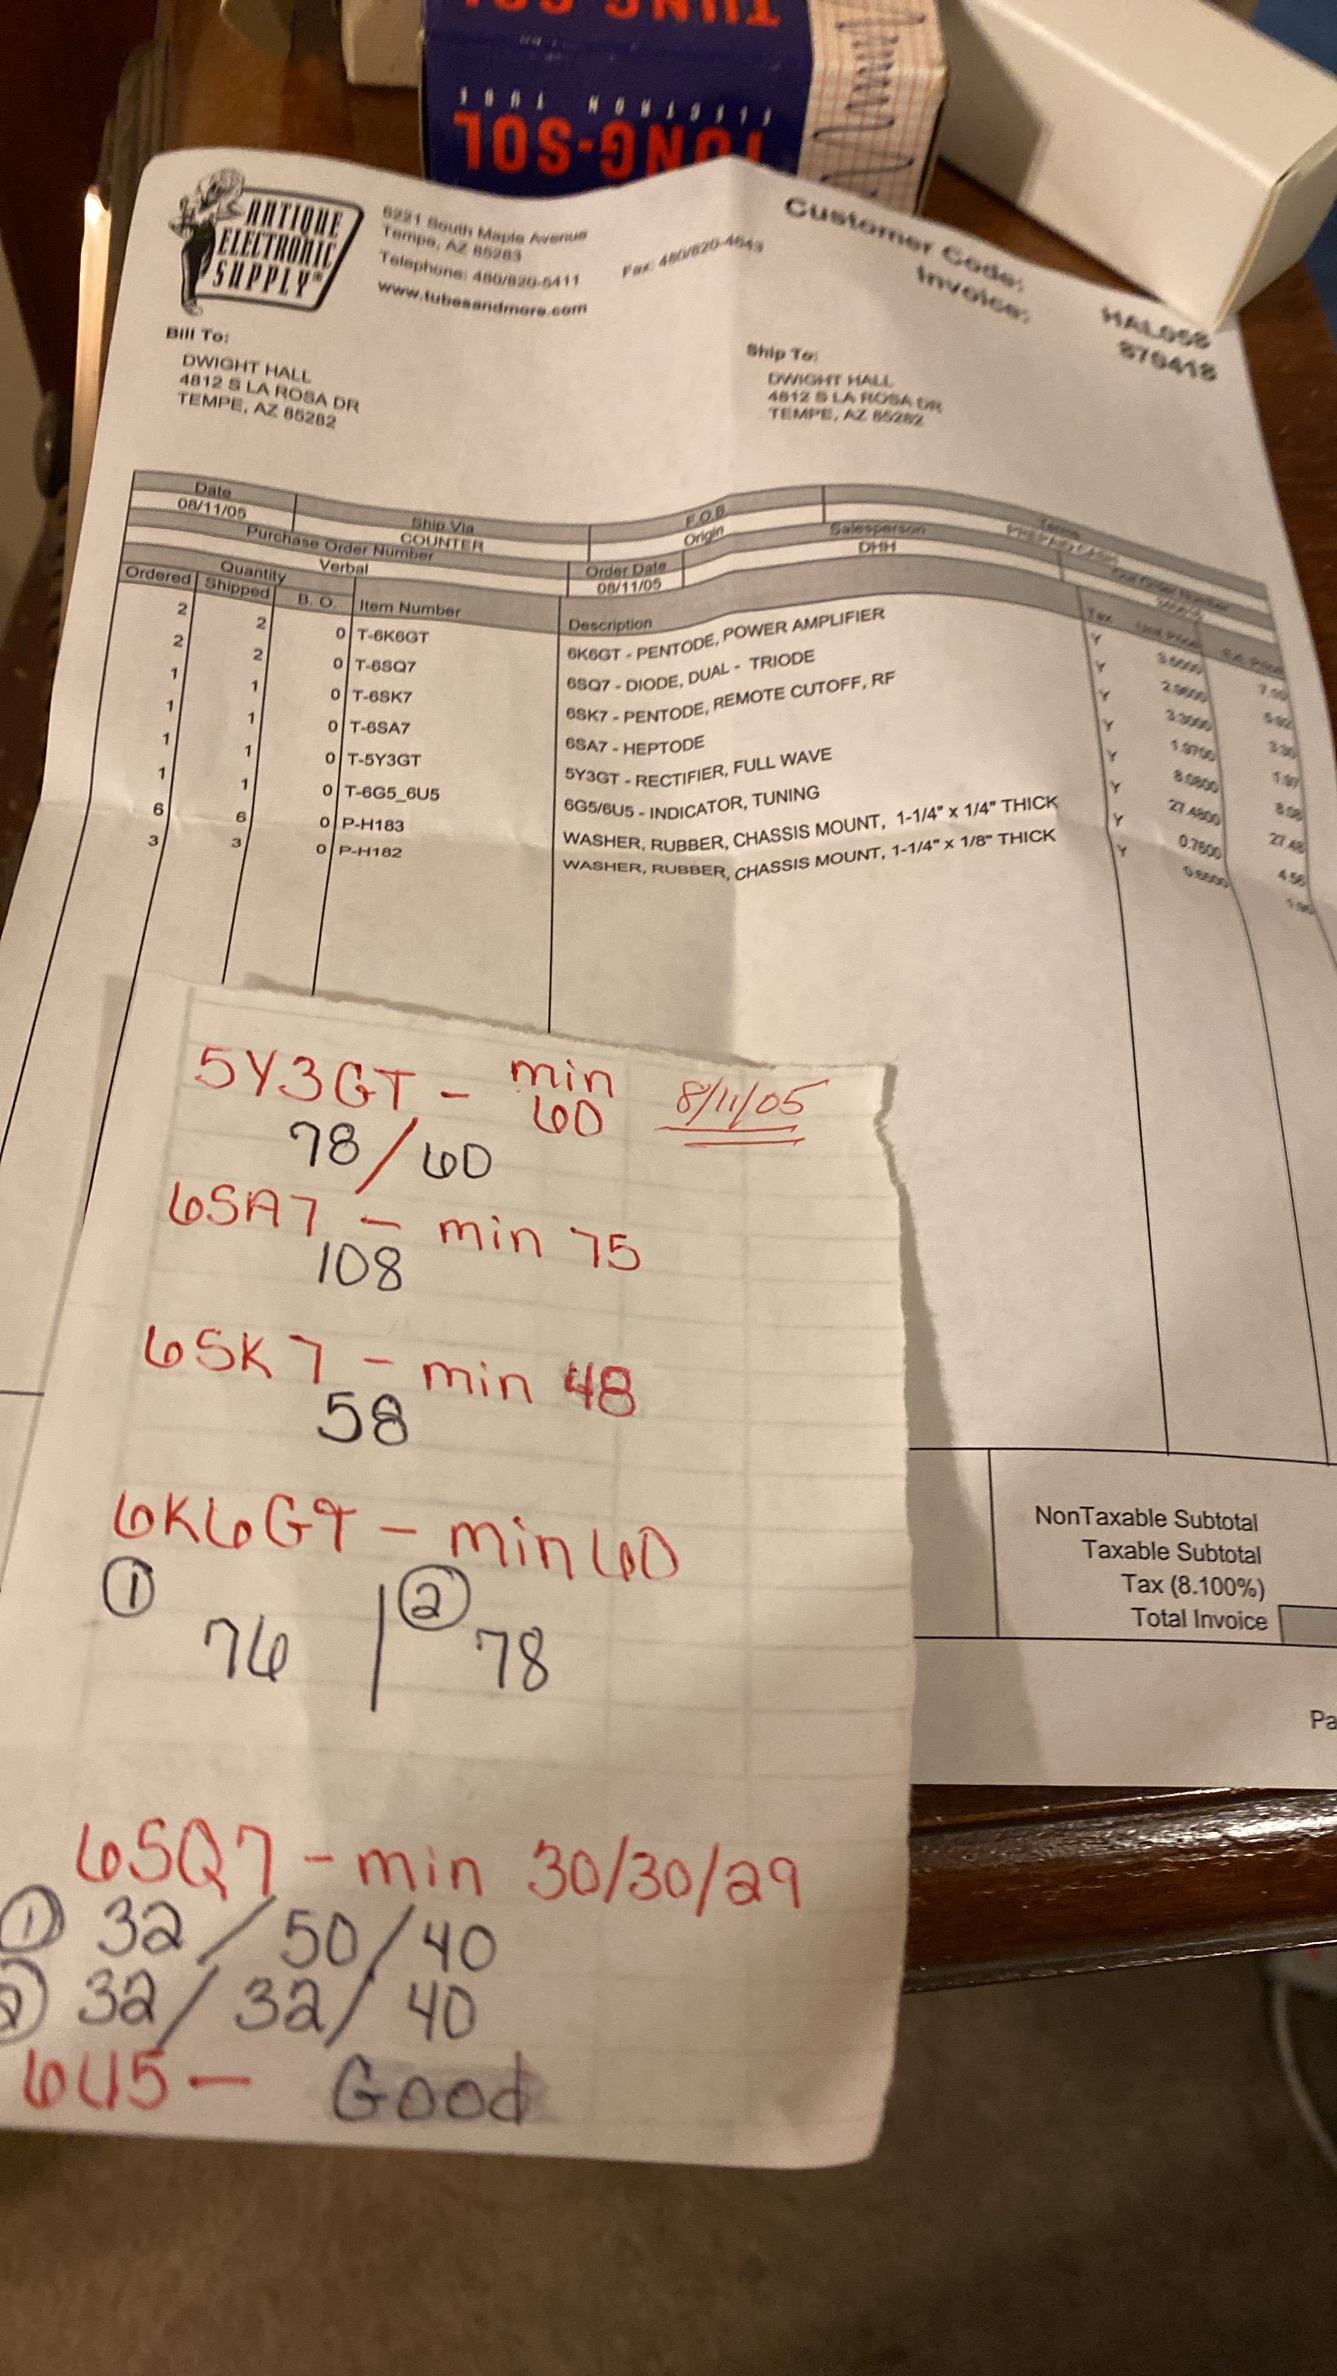 TUNG-SOL
ELECTRON TUBE
TUNG-SOL
ANTIQUE
ELECTRONIC
SUPPLY
6221 South Maple Avenue
Tempe, AZ 85283
Telephone: 480/820-5411
Fax: 480/820-4643
www.tubesandmore.com
Customer Code: HAL058
Invoice: 876418
Bill To:
DWIGHT HALL
4812 S LA ROSA DR
TEMPE, AZ 85282
Ship To:
DWIGHT HALL
4812 S LA ROSA DR
TEMPE, AZ 85282
Date Ship Via F.O.B Terms
08/11/05 COUNTER Origin PREPAID CASH
Purchase Order Number Order Date Salesperson Our Order Number
Verbal 08/11/05 DHH
Quantity
Ordered Shipped B. O. Item Number Description Tax Unit Price Ext. Price
2 2 0 T-6K6GT 6K6GT - PENTODE, POWER AMPLIFIER Y
2 2 0 T-6SQ7 6SQ7 - DIODE, DUAL - TRIODE Y
1 1 0 T-6SK7 6SK7 - PENTODE, REMOTE CUTOFF, RF Y 3.3000 3.30
1 1 0 T-6SA7 6SA7 - HEPTODE Y 1.9700 1.97
1 1 0 T-5Y3GT 5Y3GT - RECTIFIER, FULL WAVE Y 8.0800 8.08
1 1 0 T-6G5_6U5 6G5/6U5 - INDICATOR, TUNING Y 27.4800 27.48
6 6 0 P-H183 WASHER, RUBBER, CHASSIS MOUNT, 1-1/4" x 1/4" THICK Y 0.7600 4.56
3 3 0 P-H182 WASHER, RUBBER, CHASSIS MOUNT, 1-1/4" x 1/8" THICK Y
5Y3GT - min 60 8/11/05
78/60
6SA7 - min 75
108
6SK7 - min 48
58
6K6GT - min 60
1 76 | 2 78
6SQ7 - min 30/30/29
1 32/50/40
2 32/32/40
6U5 - Good
NonTaxable Subtotal
Taxable Subtotal
Tax (8.100%)
Total Invoice
Pa